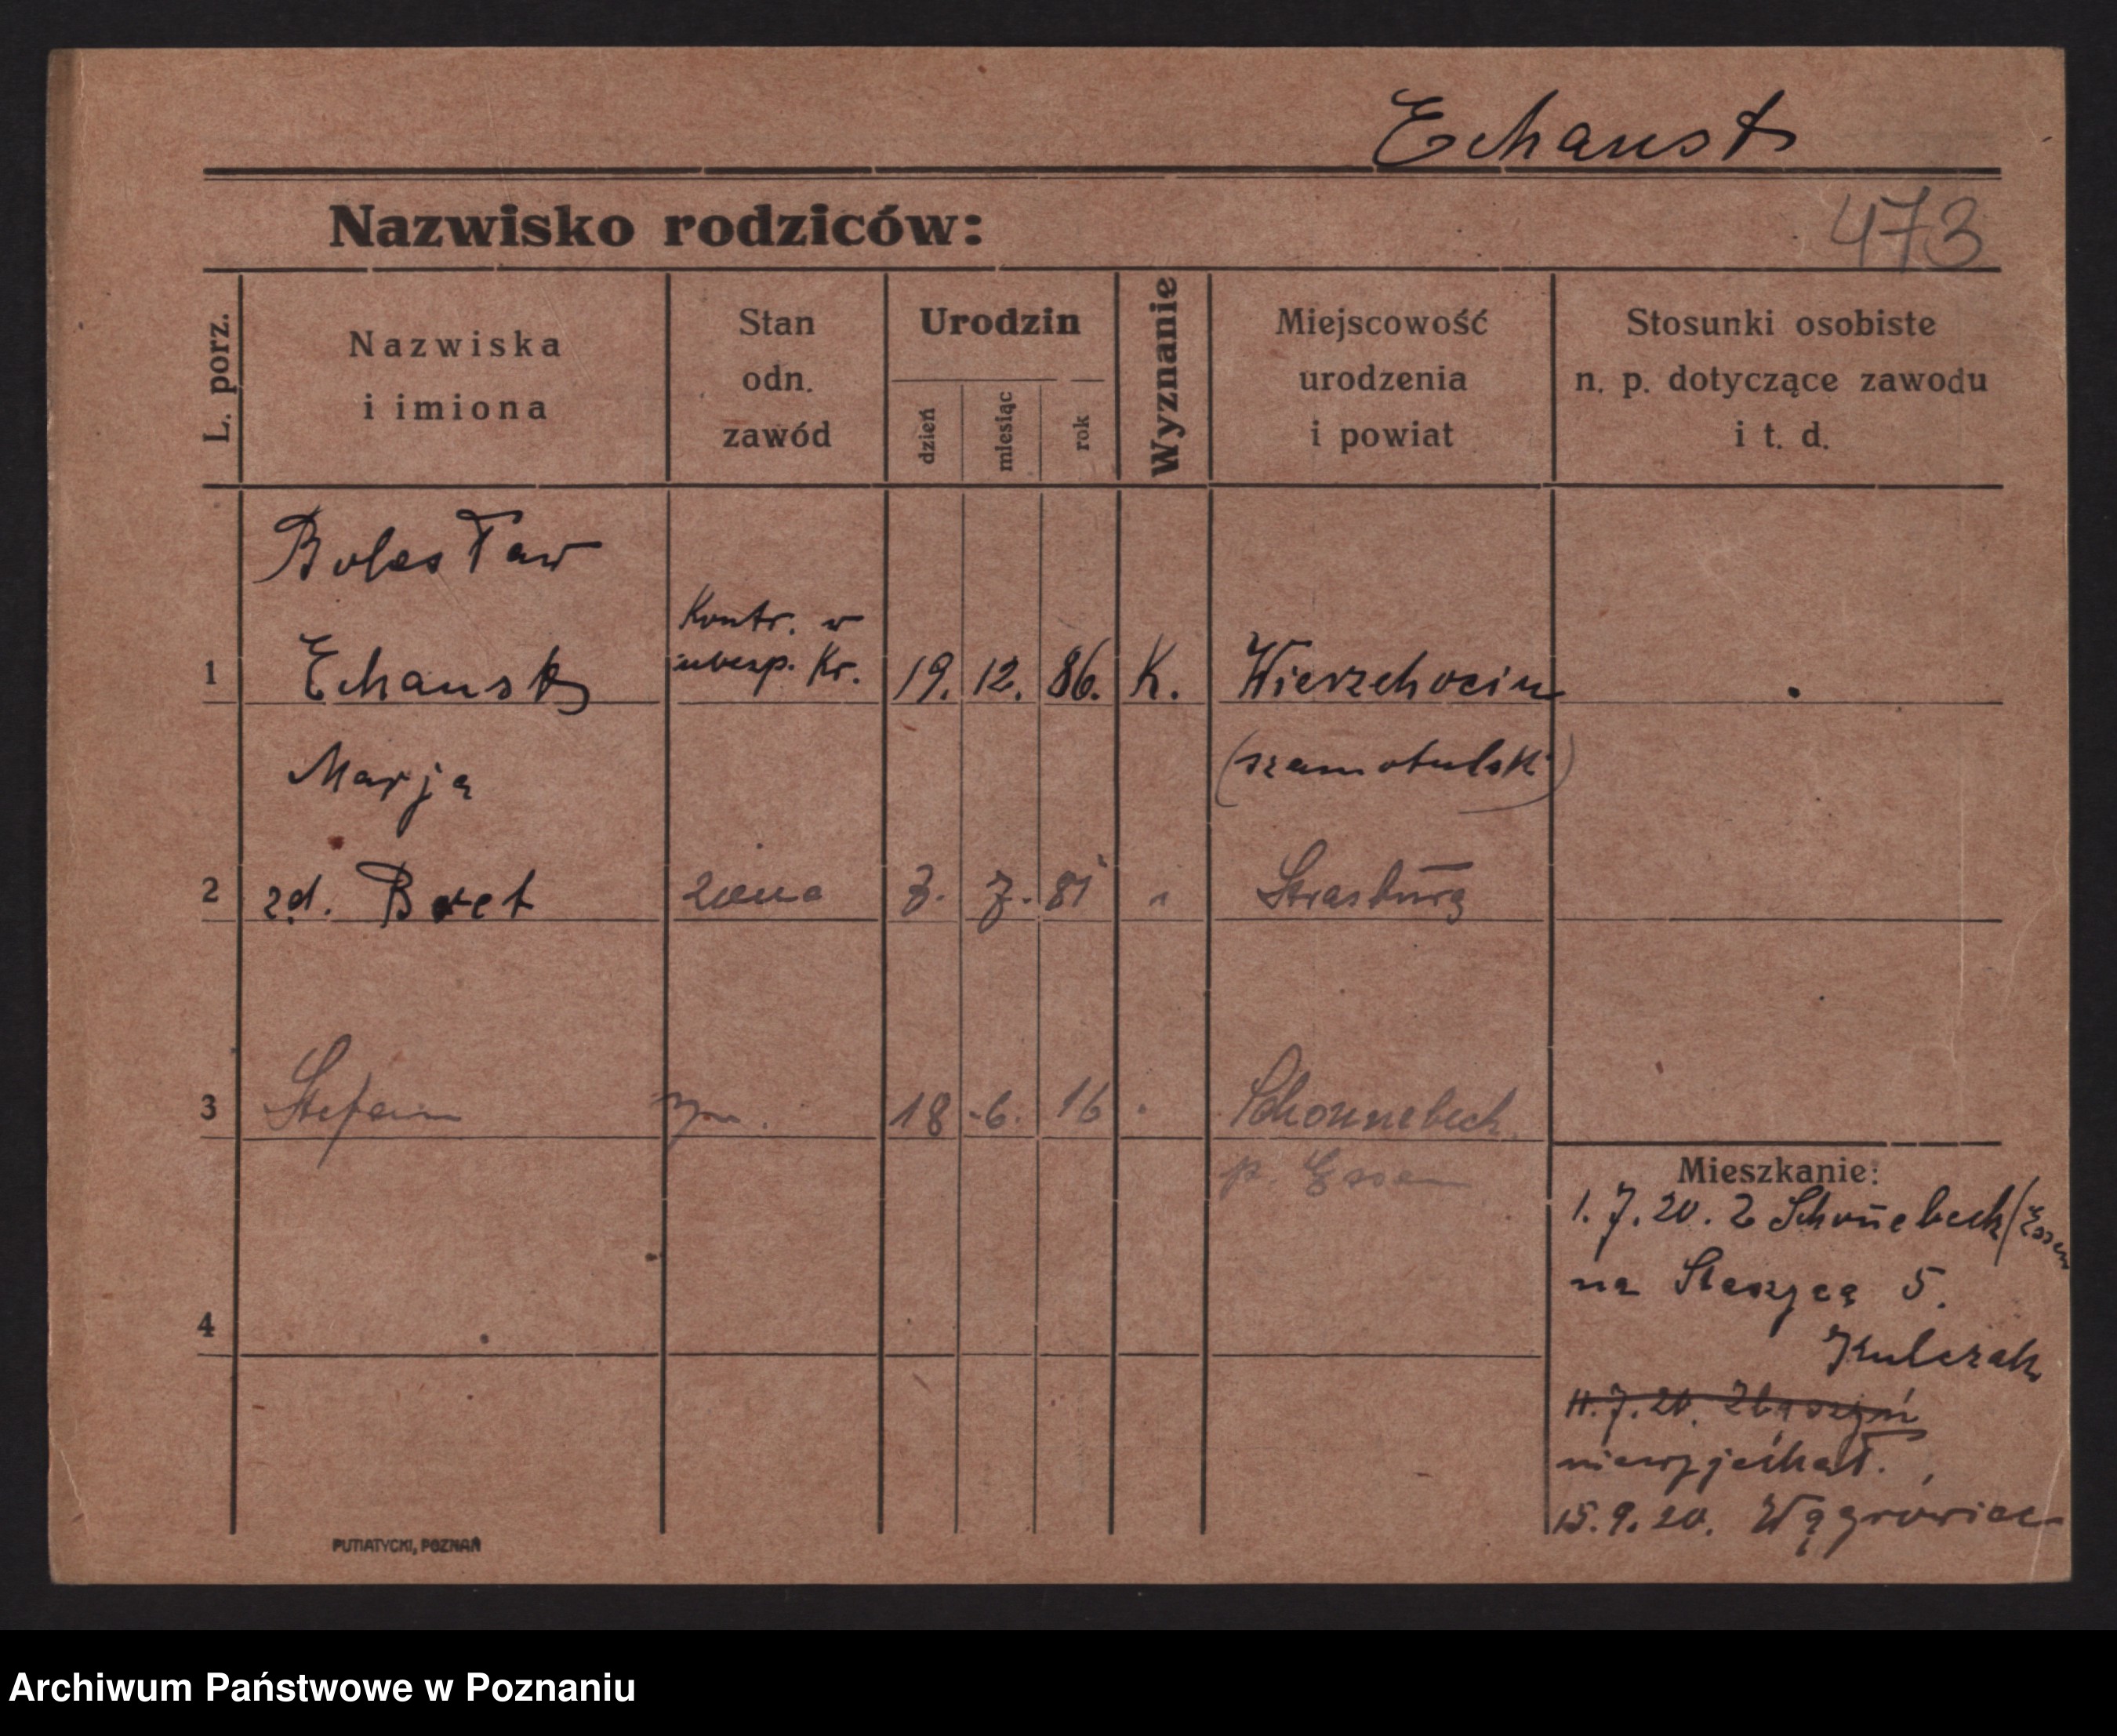 Echaust
Nazwisko rodziców:
473
L. porz.
Nazwiska
i imiona
Stan
odn.
zawód
Urodzin
dzień
miesiąc
rok
Wyznanie
Miejscowość
urodzenia
i powiat
Stosunki osobiste
n. p. dotyczące zawodu
i t. d.
Bolesław
1 Echaust Kontr. w ubezp. Kr. 19. 12. 86. K. Wierzchocin
(szamotulski)
Marja
2 zd. żona 7. 81 " Strasburg
3 Stefan 18 .6. 16 Schonnebeck
p. Essen
4
Mieszkanie:
1.7.20. z Schoñebeck/Essen
na Staszyca 5.
Kulczak
11.7.20. Zbąszyń
niewyjechał.
15.9.20. Wągrowiec
PUTIATYCKI, POZNAŃ
Archiwum Państwowe w Poznaniu